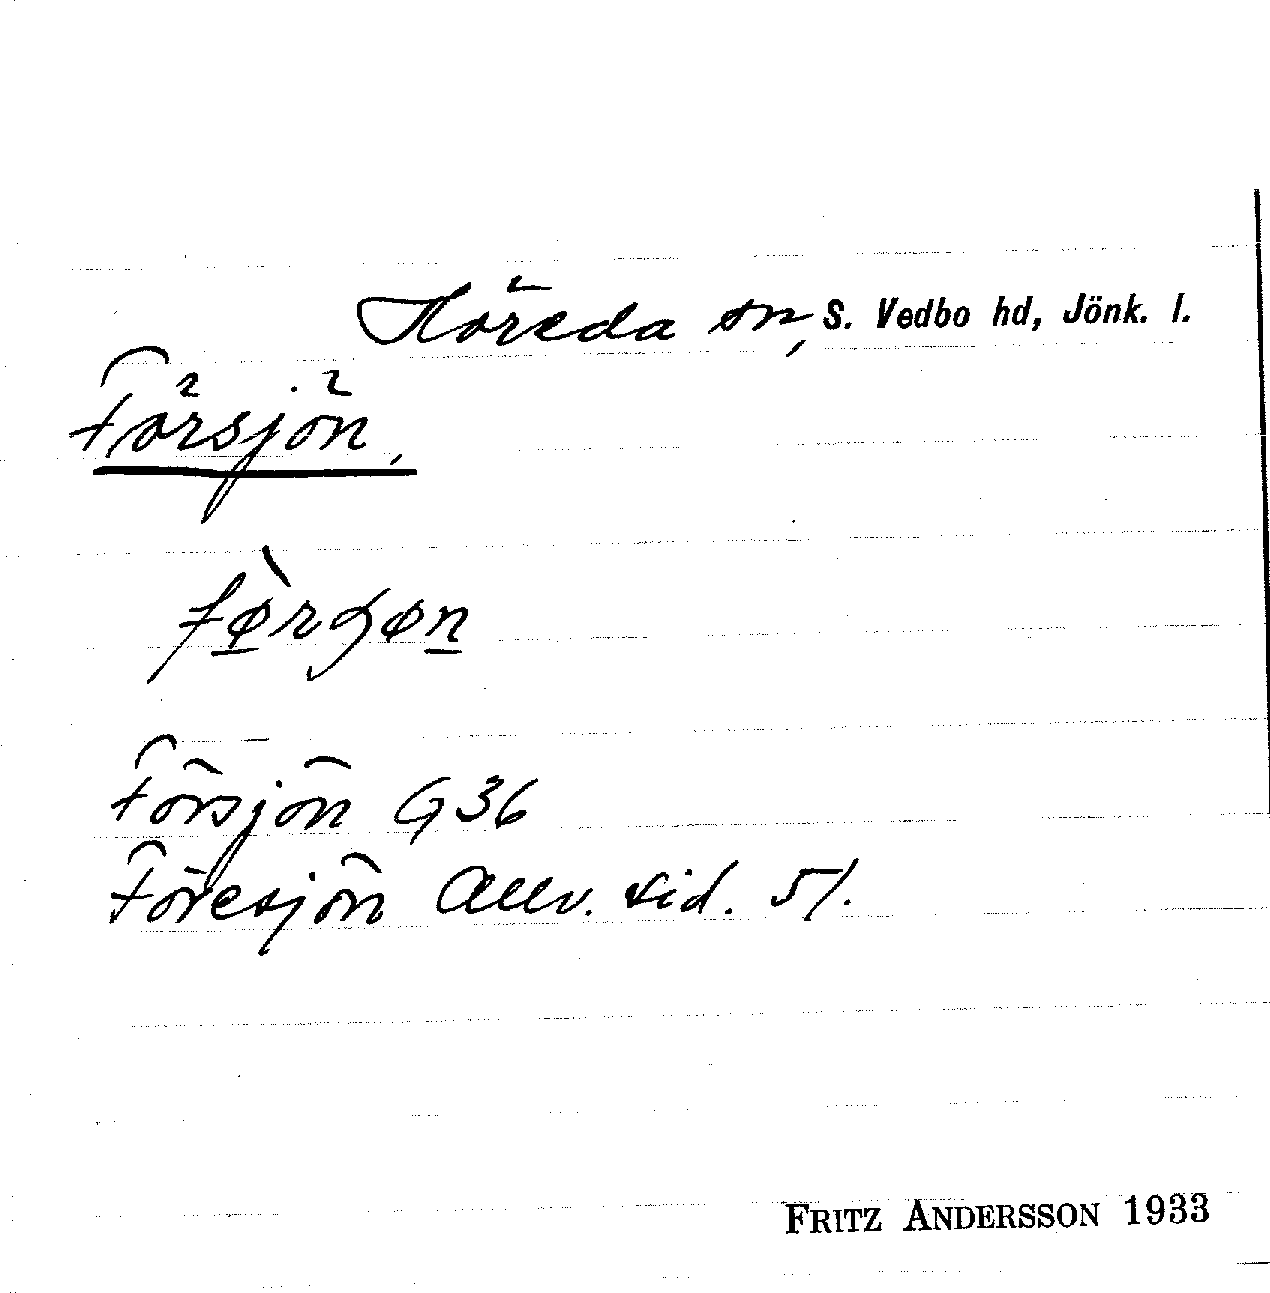 Höreda sn, S. Vedbo hd, Jönk. l.
Försjön,
Försjön G 36
Föresjön Allv. sid. 51.
FRITZ ANDERSSON 1933